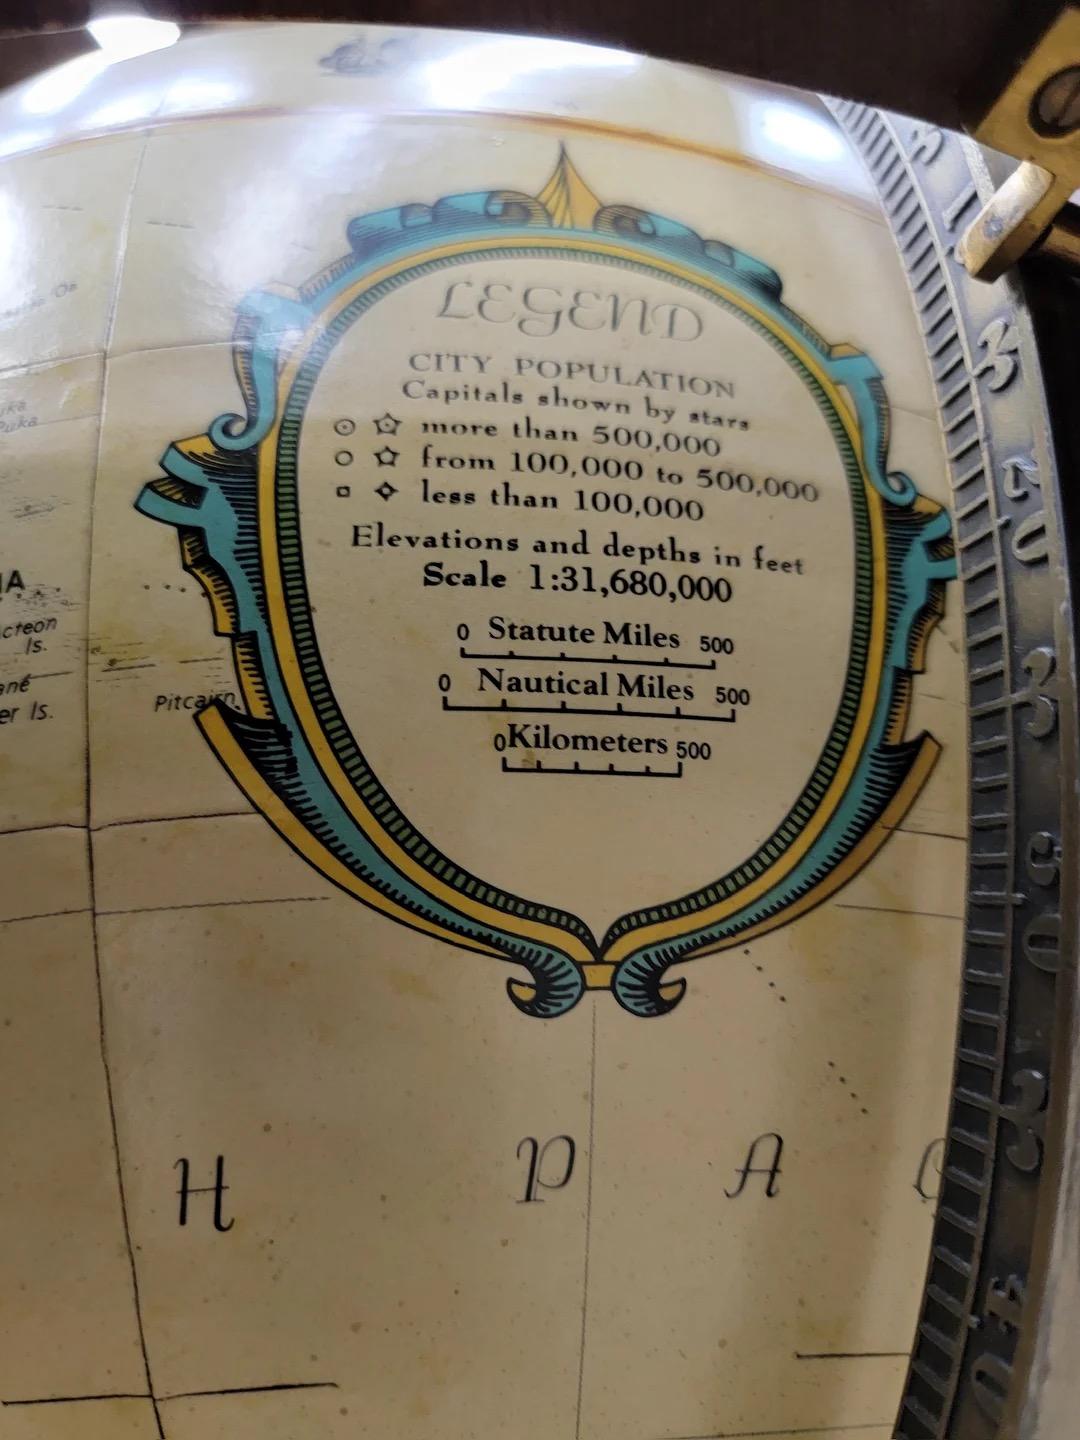 LEGEND
CITY POPULATION
Capitals shown by stars
more than 500,000
from 100,000 to 500,000
less than 100,000
Elevations and depths in feet
Scale 1:31,680,000
0 Statute Miles 500
0 Nautical Miles 500
0 Kilometers 500
Is.
Pitcairn
Is.
H P A